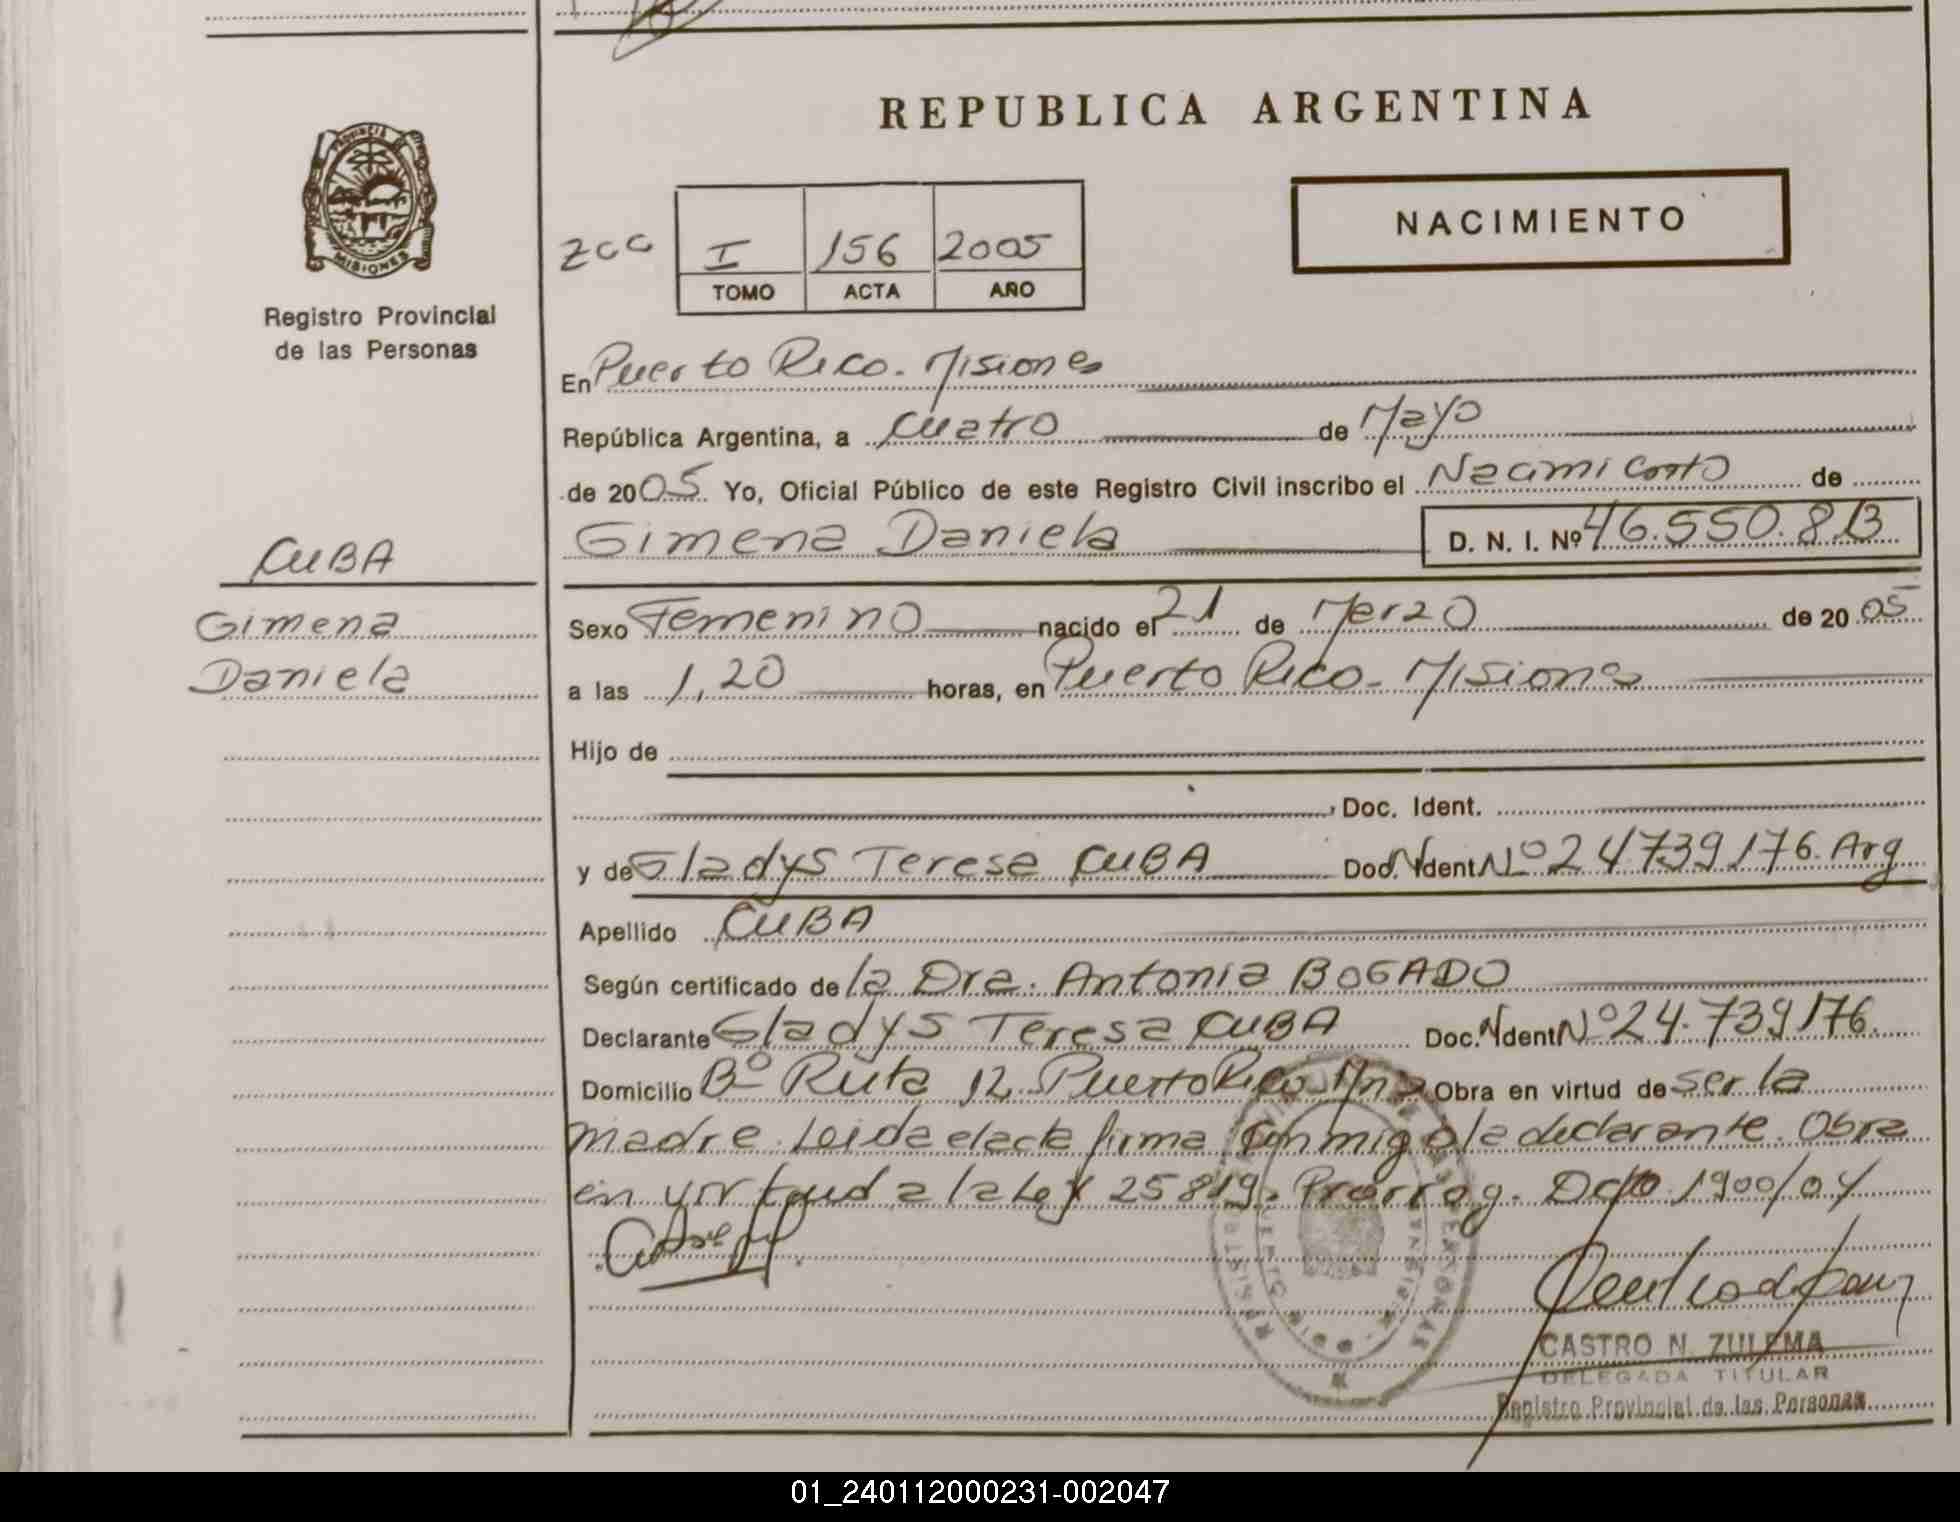 REPUBLICA ARGENTINA
PROVINCIA
MISIONES
Registro Provincial
de las Personas
NACIMIENTO
I 156 2005
TOMO ACTA AÑO
En Puerto Rico. Misiones
República Argentina, a Cuatro de Mayo
de 2005 Yo, Oficial Público de este Registro Civil inscribo el Nacimiento de
Gimena Daniela D. N. I. Nº 46.550.813
CUBA
Gimena
Daniela
Sexo Femenino nacido el 21 de Marzo de 2005
a las 1,20 horas, en Puerto Rico. Misiones
Hijo de
Doc. Ident.
y de Gladys Teresa CUBA Doc. Ident Nº 24739176. Arg
Apellido CUBA
Según certificado de la Dra. Antonia BOGADO
Declarante Gladys Teresa CUBA Doc. Ident Nº 24.739176.
Domicilio Bº Ruta 12 Puerto Rico Mnes Obra en virtud de ser la
madre. Leida el acta firma conmigo la declarante. Obra
en virtud a la Ley 25819. Prorrog. Dcto 1900/04
CASTRO N. ZULEMA
DELEGADA TITULAR
Registro Provincial de las Personas
01_240112000231-002047